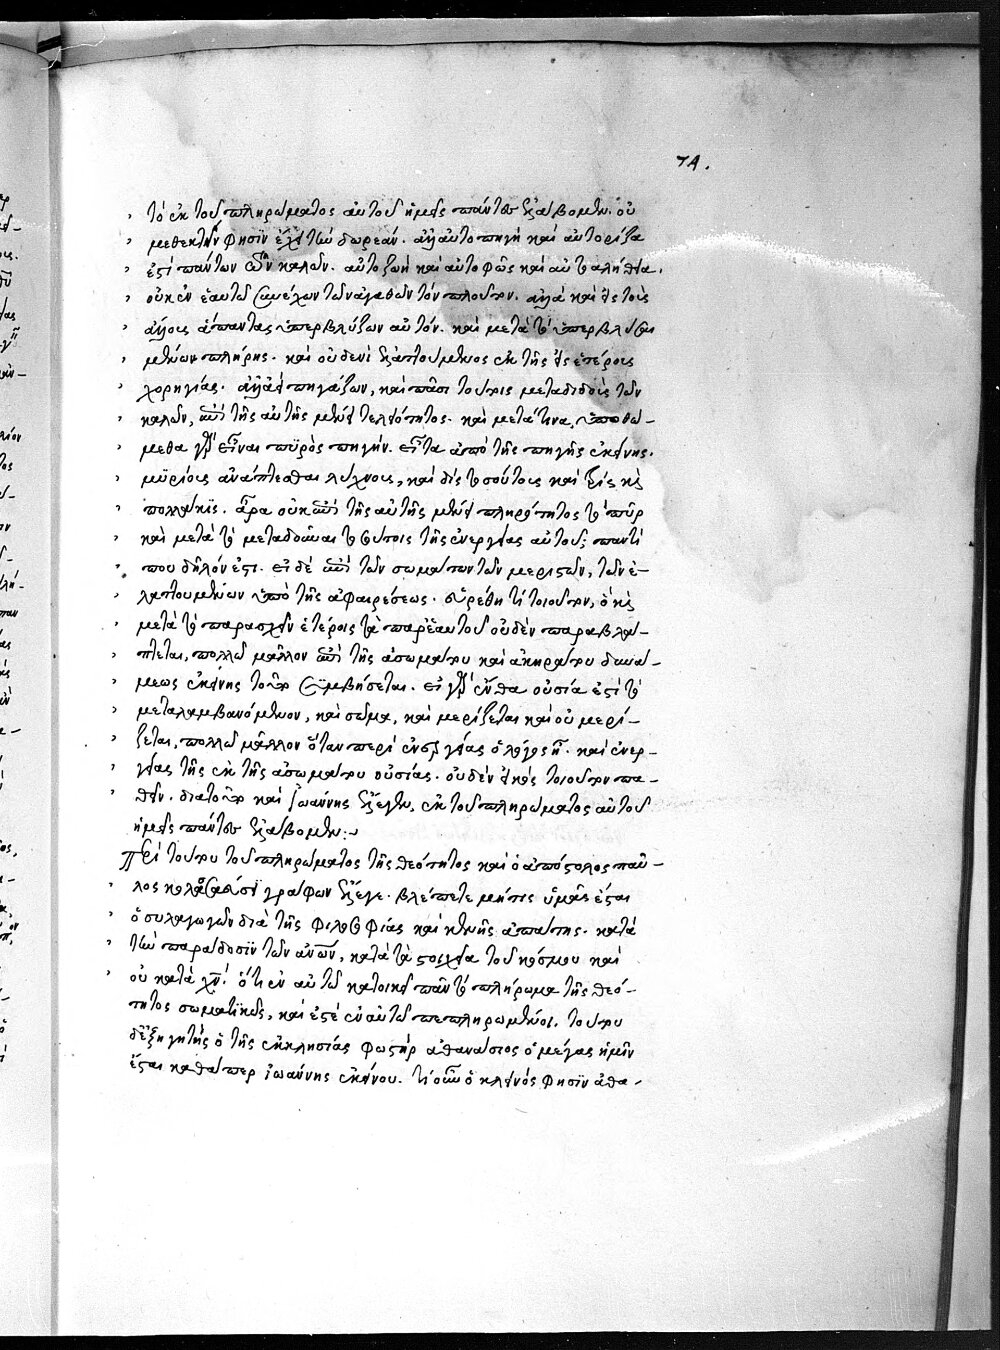 74.
τὸ ἐκ τοῦ πληρώματος αὐτοῦ ἡμεῖς πάντες ἐλάβομεν. οὐ
μεθεκτὴν φησὶν ἔχει τὴν δωρεάν. ἀλλ' αὐτοπηγὴ καὶ αὐτορίζα
ἐστὶ πάντων τῶν καλῶν. αὐτοζωὴ καὶ αὐτοφῶς καὶ αὐτοαλήθεια.
οὐκ ἐν ἑαυτῷ συνέχων τῶν ἀγαθῶν τὸν πλοῦτον. ἀλλὰ καὶ εἰς τοὺς
ἄλλους ἅπαντας ὑπερβλύζων αὐτόν. καὶ μετὰ τὸ ὑπερβλύσαι
μένων πλήρης. καὶ οὐδενὶ ἐλαττούμενος ἐκ τῆς εἰς ἑτέρους
χορηγίας. ἀλλ' ἀεὶ πηγάζων, καὶ πᾶσι τούτοις μεταδιδοὺς τῶν
καλῶν, ἐπὶ τῆς αὐτῆς μένει τελειότητος. καὶ μετά τινα, ὑποθώ-
μεθα γὰρ εἶναι πυρὸς πηγήν. εἶτα ἀπὸ τῆς πηγῆς ἐκείνης.
μυρίους ἀνάπτεσθαι λύχνους, καὶ δὶς τοσούτους καὶ τρὶς καὶ
πολλάκις. ἆρα οὐκ ἐπὶ τῆς αὐτῆς μένει πληρότητος τὸ πῦρ
καὶ μετὰ τὸ μεταδοῦναι τούτοις τῆς ἐνεργείας αὐτοῦ; παντί
που δῆλόν ἐστι. εἰ δὲ ἐπὶ τῶν σωμάτων τῶν μεριστῶν, τῶν ἐ-
λαττουμένων ὑπὸ τῆς ἀφαιρέσεως. εὑρέθη τι τοιοῦτον, ὃ καὶ
μετὰ τὸ παρασχεῖν ἑτέροις τὰ παρ' ἑαυτοῦ οὐδὲν παραβλά-
πτεται, πολλῷ μᾶλλον ἐπὶ τῆς ἀσωμάτου καὶ ἀκηράτου δυνά-
μεως ἐκείνης τοῦτο συμβήσεται. εἰ γὰρ ἔνθα οὐσία ἐστὶ τὸ
μεταλαμβανόμενον, καὶ σῶμα, καὶ μερίζεται καὶ οὐ μερί-
ζεται, πολλῷ μᾶλλον ὅταν περὶ ἐνεργείας ὁ λόγος ᾖ. καὶ ἐνερ-
γείας τῆς ἐκ τῆς ἀσωμάτου οὐσίας. οὐδὲν εἰκὸς τοιοῦτον πα-
θεῖν. διατοῦτο καὶ ἰωάννης ἔλεγεν, ἐκ τοῦ πληρώματος αὐτοῦ
ἡμεῖς πάντες ἐλάβομεν:~
Περὶ τούτου τοῦ πληρώματος τῆς θεότητος καὶ ὁ ἀπόστολος παῦ-
λος κολασσαεῦσι γράφων ἔλεγε. βλέπετε μή τις ὑμᾶς ἔσται
ὁ συλαγωγῶν διὰ τῆς φιλοσοφίας καὶ κενῆς ἀπάτης. κατὰ
τὴν παράδοσιν τῶν ἀνων, κατὰ τὰ στοιχεῖα τοῦ κόσμου καὶ
οὐ κατὰ χν. ὅτι ἐν αὐτῷ κατοικεῖ πᾶν τὸ πλήρωμα τῆς θεό-
τητος σωματικῶς, καὶ ἐστὲ ἐν αὐτῷ πεπληρωμένοι. τούτου
δ' ἐξηγητὴς ὁ τῆς ἐκκλησίας φωστὴρ ἀθανάσιος ὁ μέγας ἡμῖν
ἔσται καθάπερ ἰωάννης ἐκείνου. τί οὖν ὁ κλεινός φησιν ἀθα-